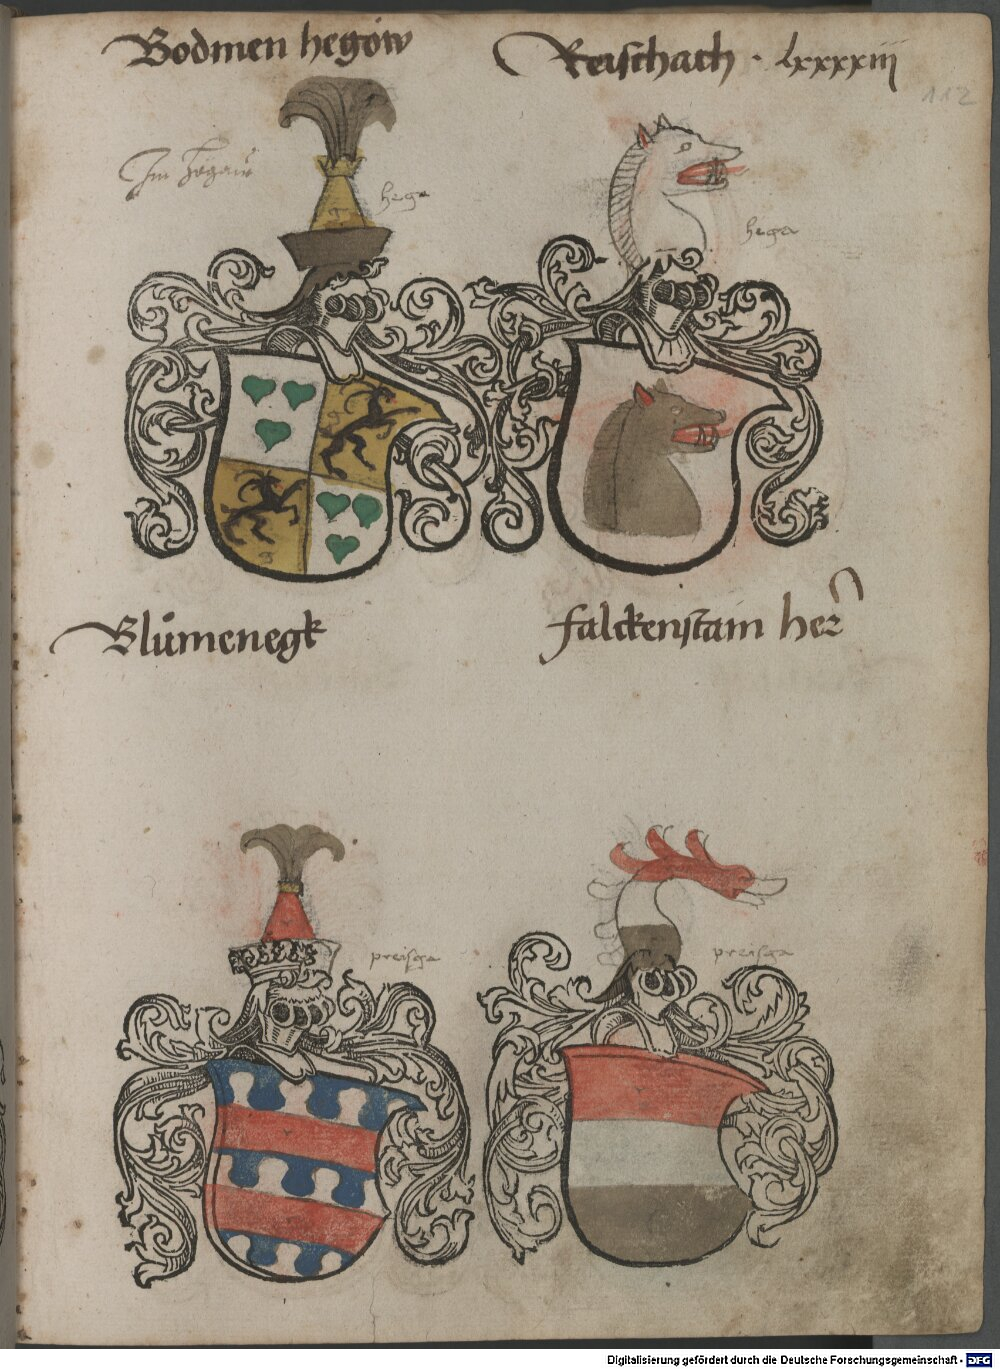 Bodmen hegöw
Reischach · lxxxxiii
112
Im Högaü
hega
hega
g
g
g
g
Blůmenegk
falckenstain her
preisga
preisga
Digitalisierung gefördert durch die Deutsche Forschungsgemeinschaft - DFG